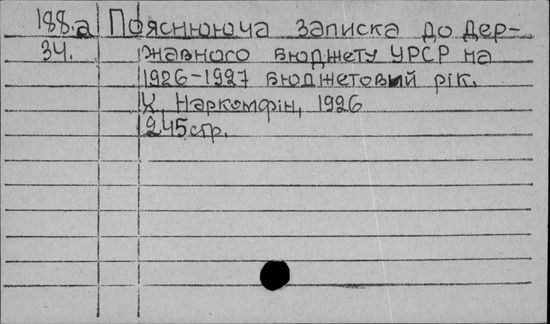 188.а Пояснююча записка до Дер-
34. жавного бюджету УРСР на
1926-1927 бюджетовий рік.
Х. Наркомфін, 1926
245 стр.